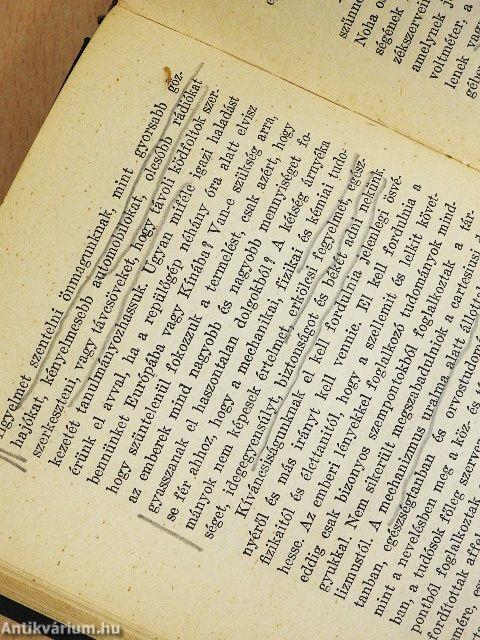 szünne
Noha os
ségének
zékszervein
amelynek jó
voltméter, a
lenek vagy
figyelmet szentelni önmagunknak, mint gyorsabb gőz-
hajókat, kényelmesebb automobilokat, olcsóbb rádiókat
szerkeszteni, vagy távcsöveket, hogy távoli ködfoltok szer-
kezetét tanulmányozhassuk. Ugyan miféle igazi haladást
érünk el avval, ha a repülőgép néhány óra alatt elvisz
bennünket Európába vagy Kínába? Van-e szükség arra,
hogy szüntelenül fokozzuk a termelést, csak azért, hogy
az emberek mind nagyobb és nagyobb mennyiséget fo-
gyasszanak el haszontalan dolgokból? A kétség árnyéka
se fér ahhoz, hogy a mechanikai, fizikai és kémiai tudo-
mányok nem képesek értelmet, erkölcsi fegyelmet, egész-
séget, idegegyensúlyt, biztonságot és békét adni nekünk.
Kíváncsiságunknak el kell fordulnia jelenlegi ösvé-
nyéről és más irányt kell vennie. El kell fordulnia a
fizikaitól és élettanitól, hogy a szellemit és lelkit követ-
hesse. Az emberi lényekkel foglalkozó tudományok mind-
eddig csak bizonyos szempontokból foglalkoztak a tár-
gyukkal. Nem sikerült megszabadulniok a cartesiusi
lizmustól. A mechanizmus uralma alatt állottak
tanban, egészségtanban és orvostudomá
mint a nevelésben meg a köz- és
ban, a tudósok főleg szerv
pontból foglalkoztak
fordítottak
Antikvárium.hu